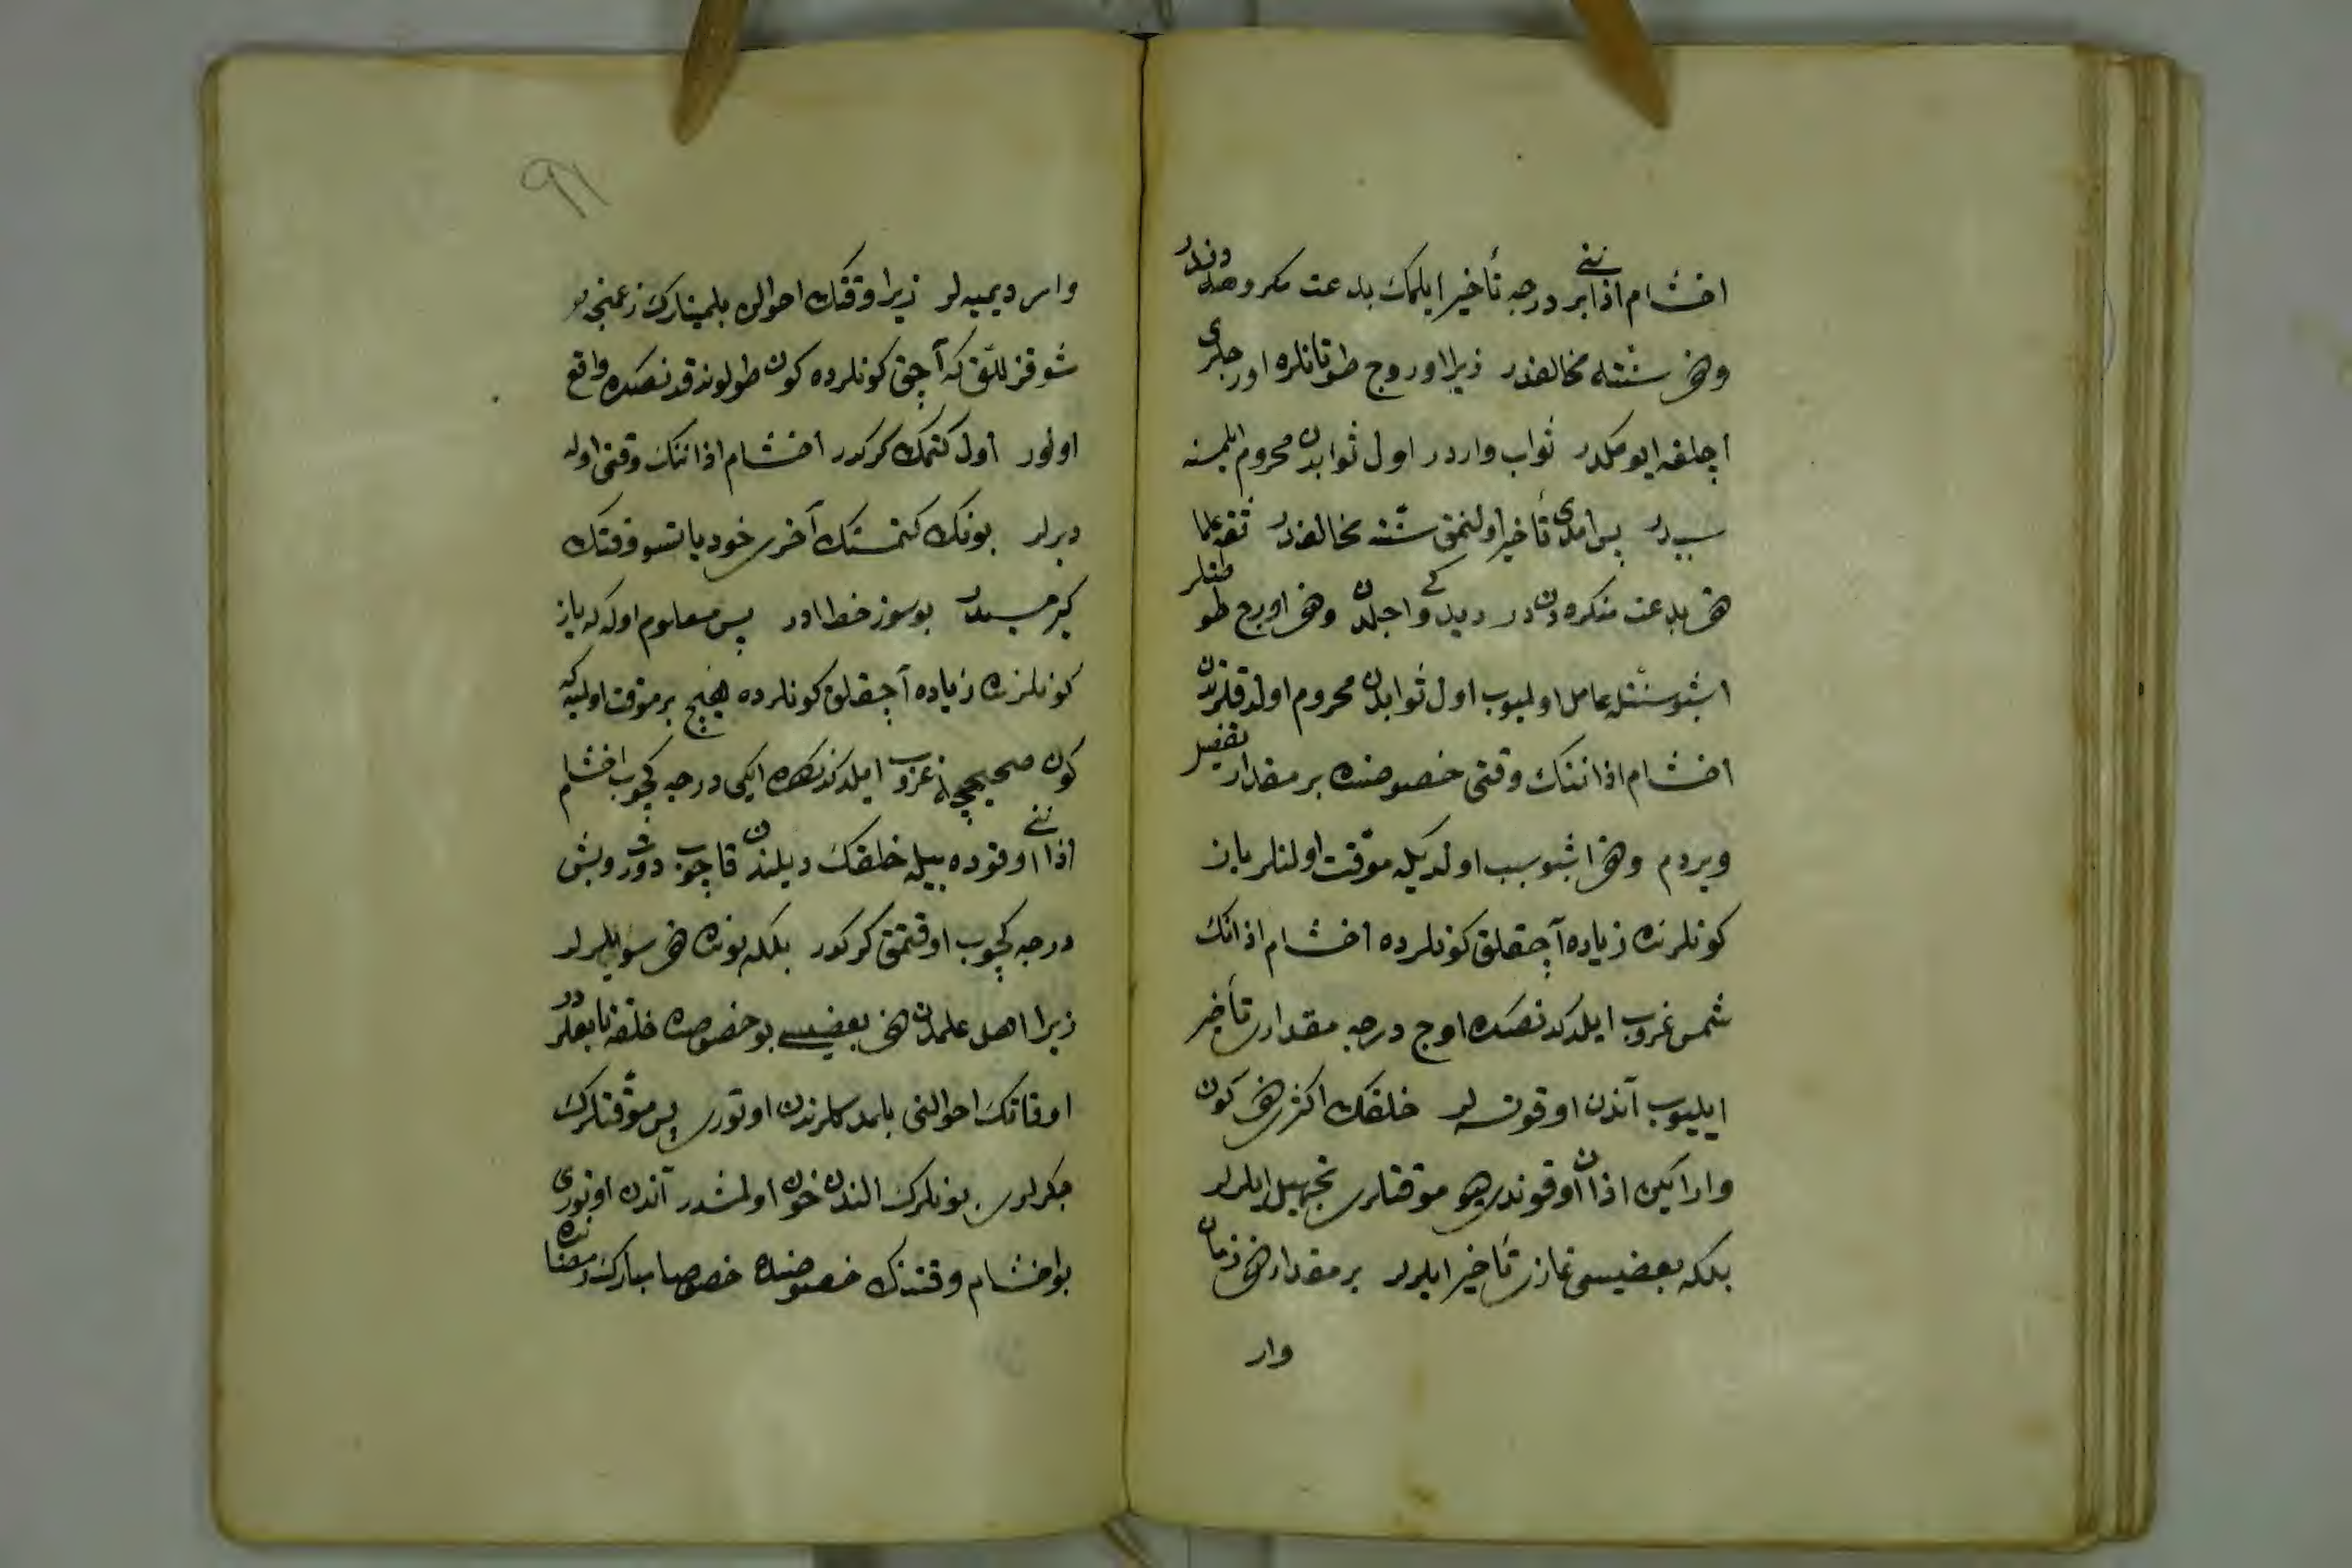 اخشام اذاننی بر درجه تأخیر ایلمك بدعت مكروهه‌دندر
وخی سنته مخالفدر زیرا اوروج طوتانلره اورجلری
اچلغه ایومكدر ثواب واردر اول ثوابدن محروم ایلمسنه
سببدر پس امدی تأخیر اولنمق سنته مخالفدر ثقه علما
خی بدعت منكره‌دندر دیدكی واجلدن وخی اورج طوطنلر
اشبو سنتله عامل اولمیوب اول ثوابدن محروم اولدقلرندن
اخشام اذاننك وقتی خصوصنده بر مقدار تفصیل
ویردم وخی اشبو سبب اولدیكه موقت اولنلر یاز
كونلرنده زیاده آچقلق كونلرده اخشام اذانك
شمس غروب ایلدكدنصكره اوج درجه مقداری تأخیر
ایلیوب آندن اوقونسه لر خلقك اكثری خی كون
وار ایكن اذان اوقوندی هیو موقتلری تجهیل ایلرلر
بلكه بعضیسی نمازی تأخیر ایلرلر بر مقدار خی زمان
وار
٩١
وار دیمیه لر زیرا وقتك احوالن بلمینلرك زعمنجه بو
شو قزللق كه آچق كونلرده كون طولوندقدنصكره واقع
اولور اول كتمك كركدر اخشام اذاننك وقتی اوله
دیرلر بونك كتمستك آخری خود یاتسو وقتك
كیرمسیدر بو سوز خطادر پس معلوم اوله كه یاز
كونلرنده زیاده آچقلق كونلرده هیچ بر موقت اولمیه كه
كون صحیحچه غروب ایلدكدنصكره ایكی درجه كچوب اخشام
اذاننی اوقوده بیله خلقك دیلندن قاچوب دورت وبش
درجه كچوب اوقتمق كركدر بلكه بونده خی سویلرلر
زیرا اهل علمدن خی بعضیسی بو خصوصده خلقه تابعلردر
اوقاتك احوالنی بلمدكلرندن اوتوری پس موقتلرك
جكرلری بونلرك الندن خون اولمشدر آندن اوتوری
بو اخشام وقتنك خصوصنده خصوصا مبارك رمضاننده